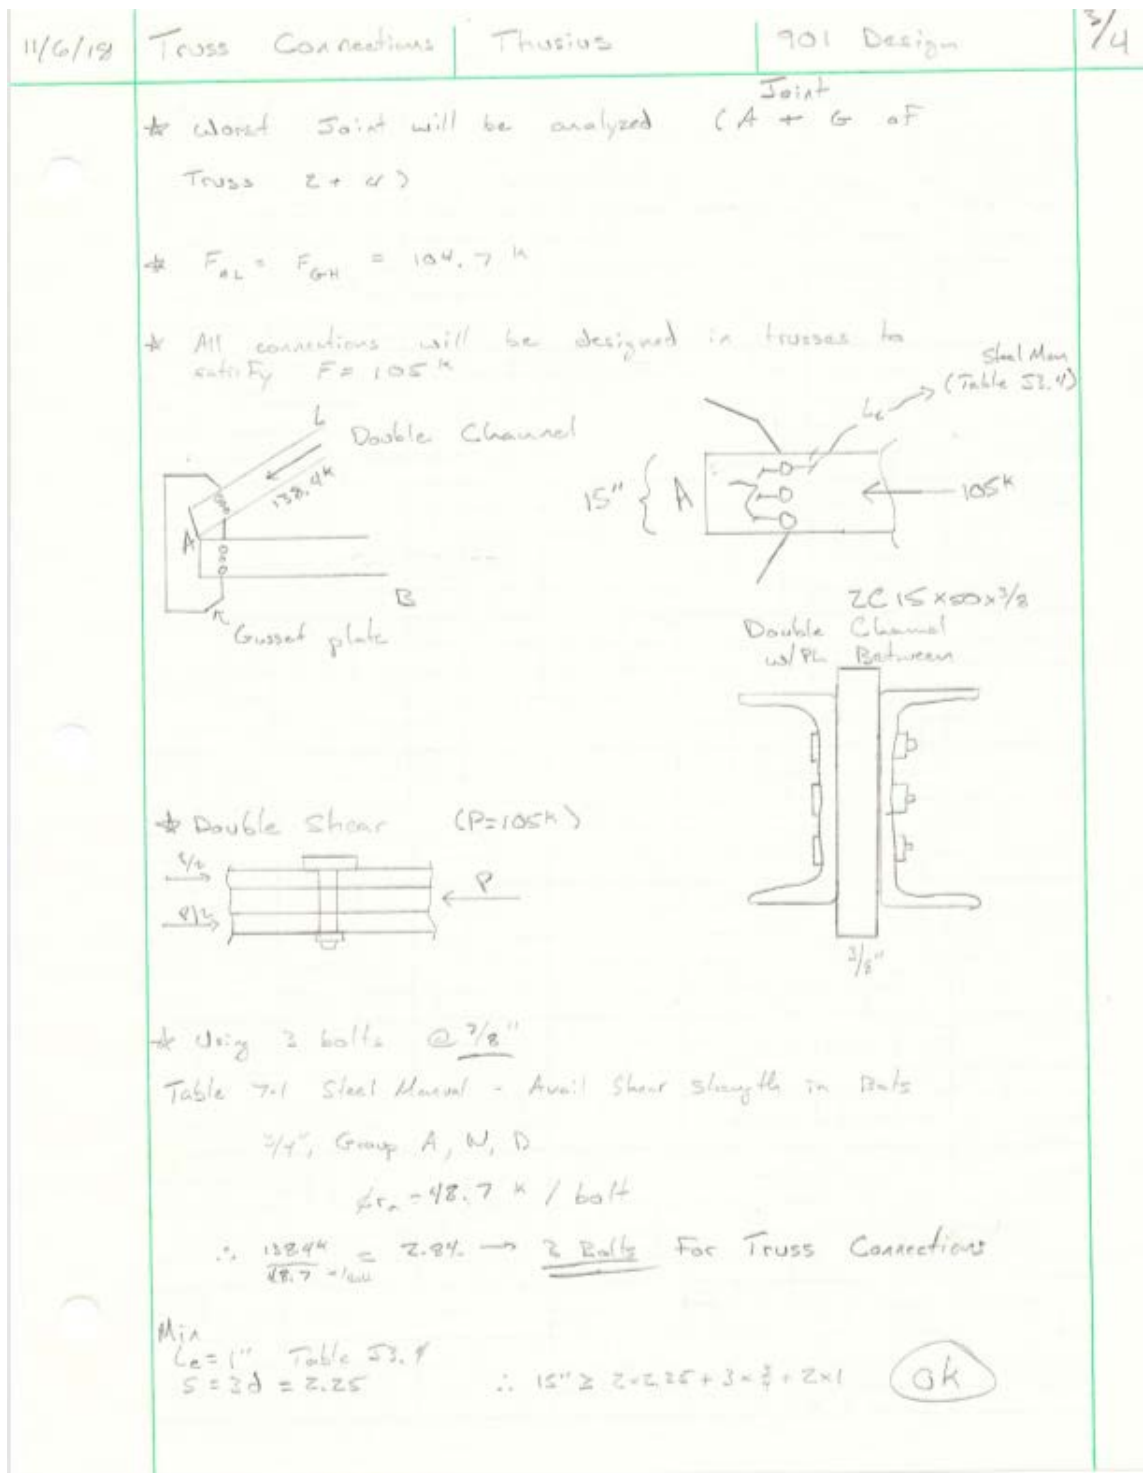 11/6/18 Truss Connections Thusius 901 Design 3/4
Joint
* Worst Joint will be analyzed (A + G of
Truss 2 + 4)
* F_AL = F_GH = 104.7 k
* All connections will be designed in trusses to
satisfy F = 105 k
Steel Man
(Table J3.4)
L
Le
Double Channel
138.4k
15" { A
105k
A
B
Gusset plate
2C 15x50x3/8
Double Channel
w/ PL Between
* Double Shear (P=105k)
P/2
P
P/2
3/8"
* Using 3 bolts @
Table 7-1 Steel Manual - Avail Shear Strength in Bolts
3/4", Group A, N, D
ϕrn = 48.7 k / bolt
∴ 138.4k / 48.7 k/bolt = 2.84 → 3 Bolts For Truss Connections
Min
Le = 1" Table J3.4
S = 3d = 2.25 ∴ 15" ≥ 2×2.25 + 3×3/4 + 2×1 ok